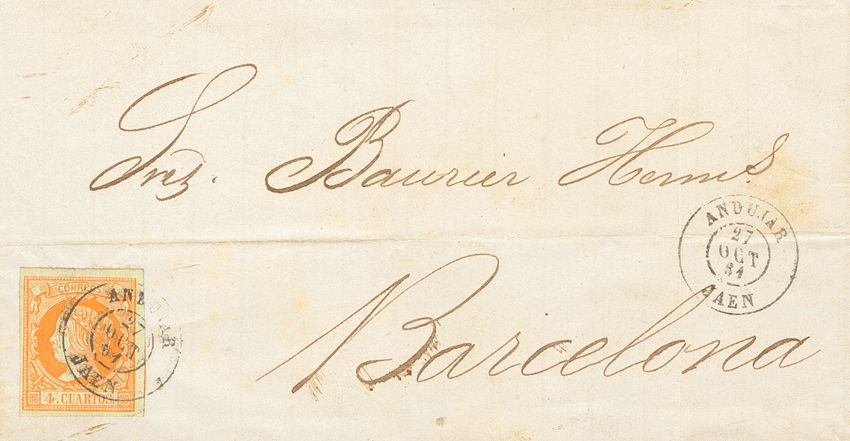 Sres. Baurier Herms.
ANDUJAR
27
OCT
61
JAEN
CORREOS
ANDUJAR
27
OCT
61
JAEN
4. CUARTOS.
Barcelona